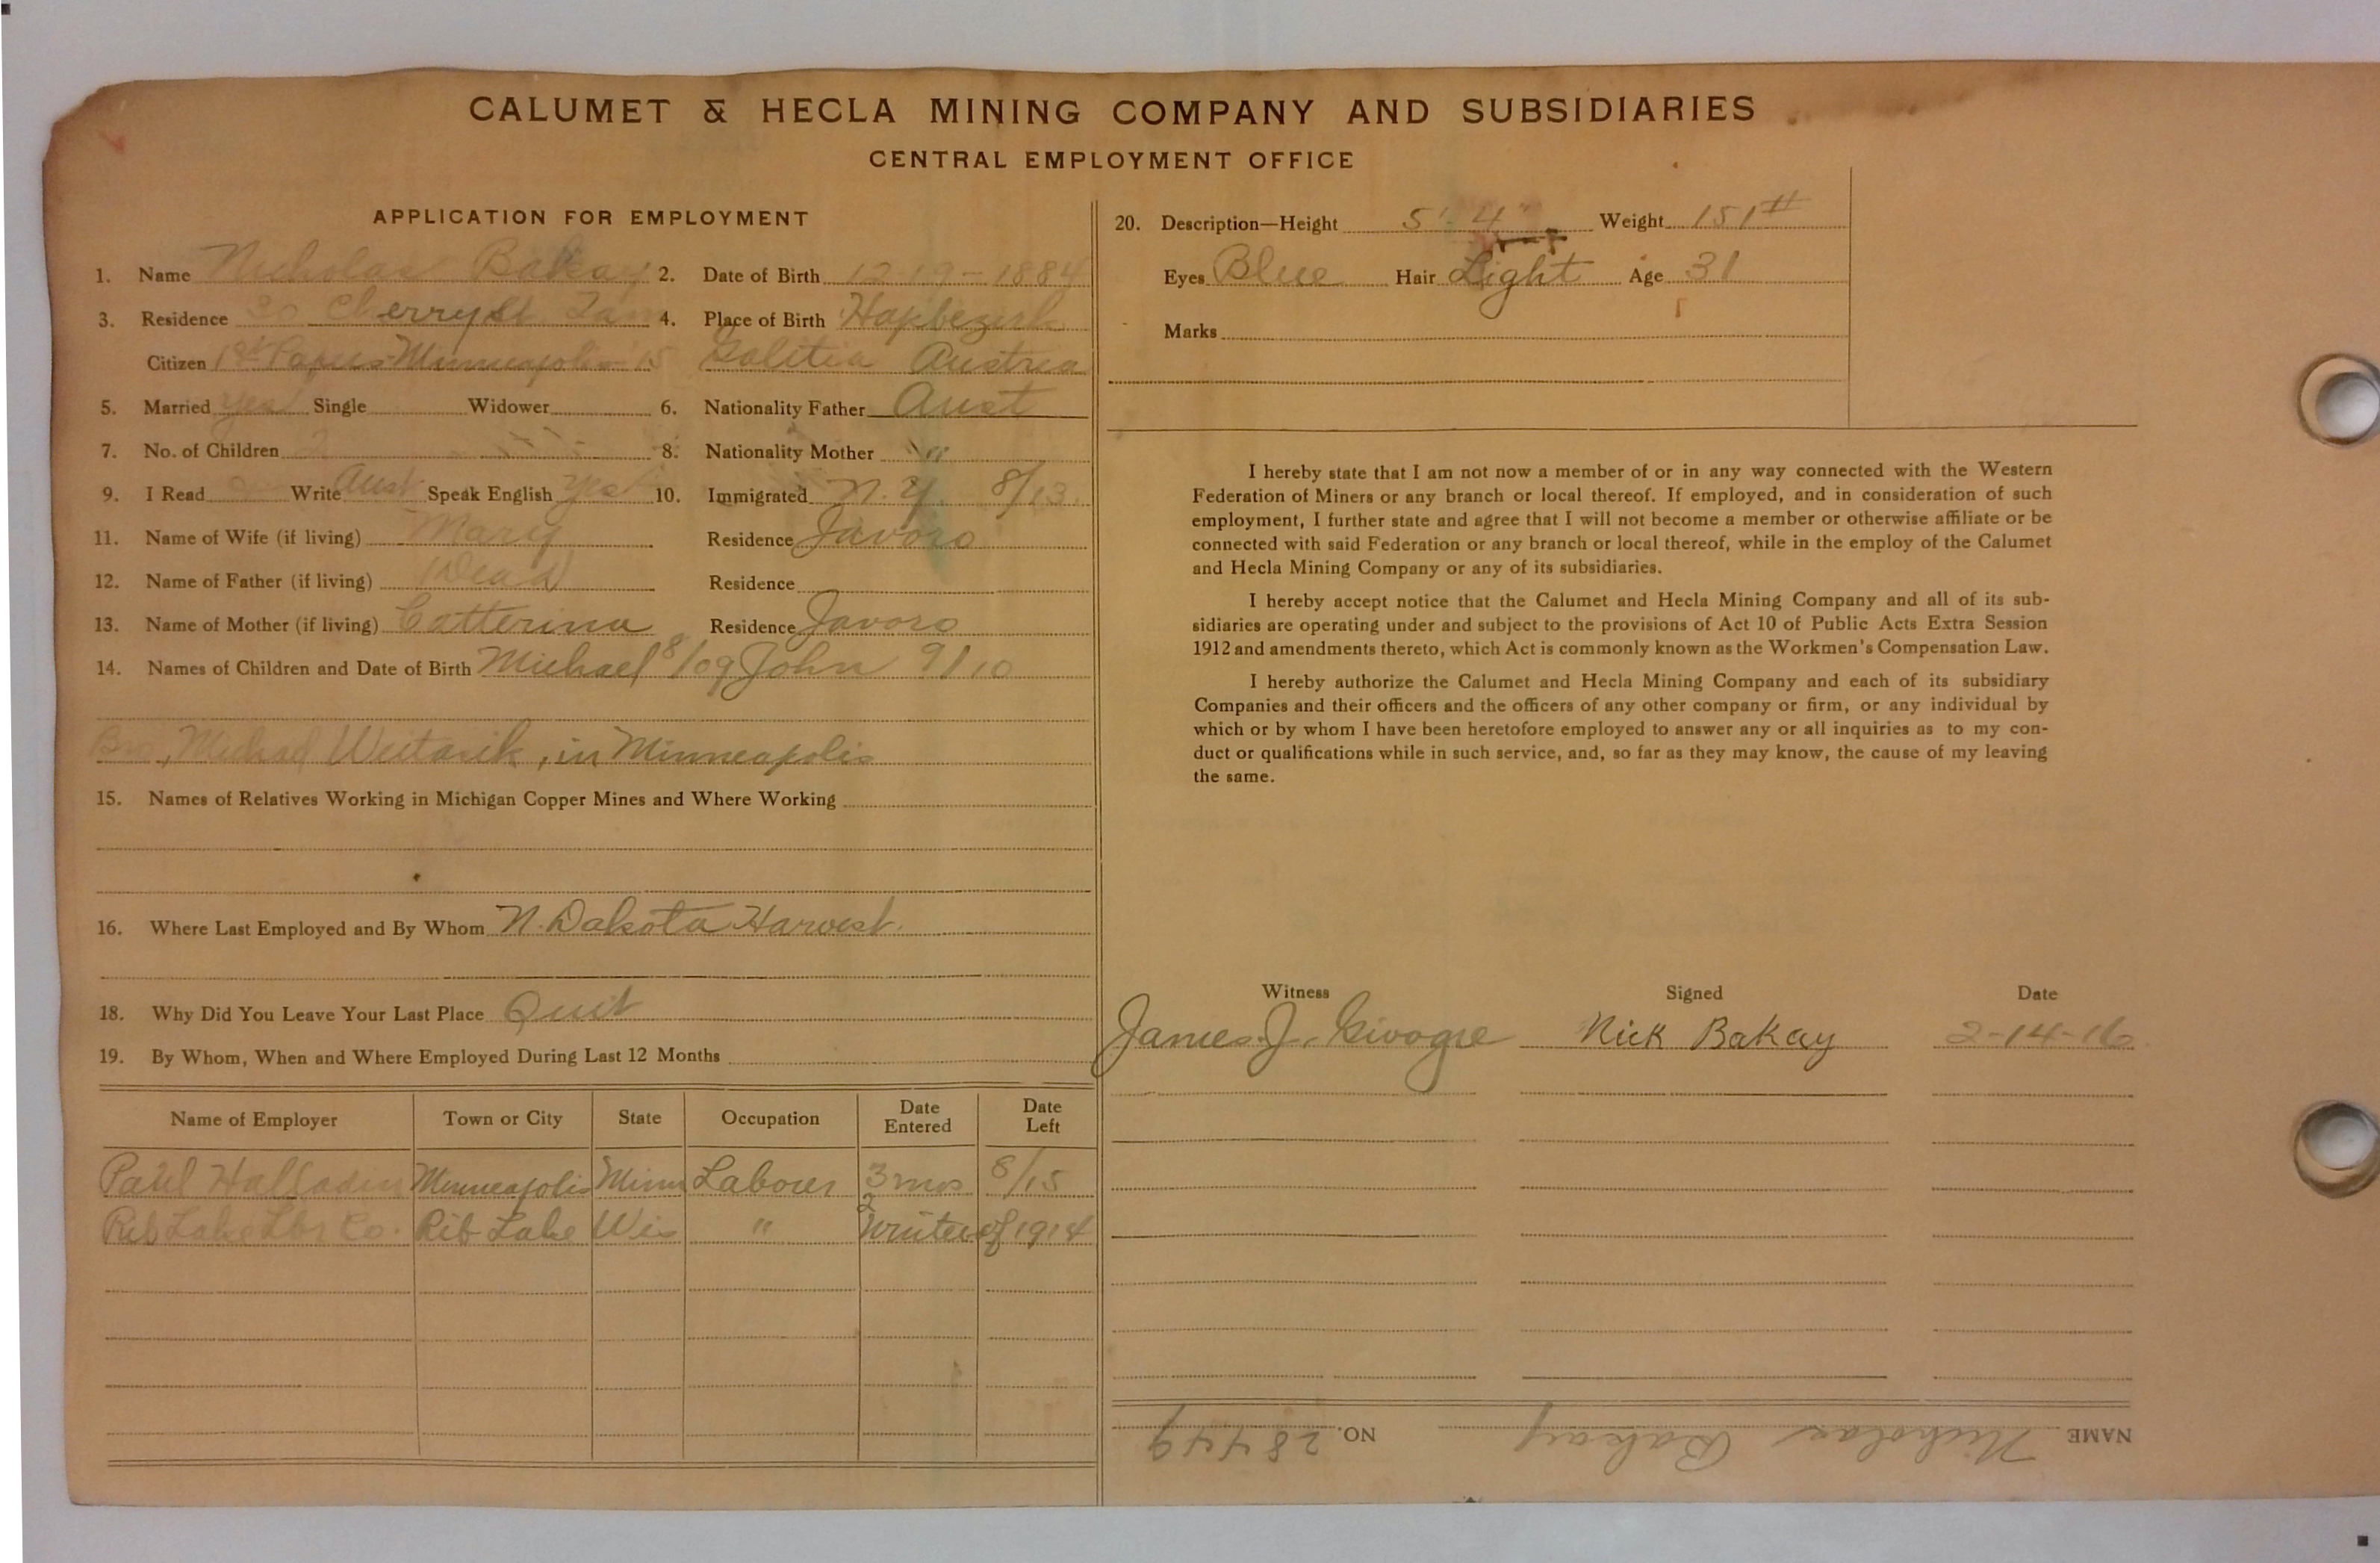 CALUMET & HECLA MINING COMPANY AND SUBSIDIARIES
CENTRAL EMPLOYMENT OFFICE
APPLICATION FOR EMPLOYMENT
1. Name Nicholas Bakay 2. Date of Birth 12-19-1884
3. Residence 30 Cherry St 4. Place of Birth
Citizen 1st Papers Minneapolis 15 Galitia Austrea
5. Married yes Single Widower 6. Nationality Father Aust
7. No. of Children 2 8. Nationality Mother "
9. I Read Write Aust Speak English yes 10. Immigrated N.Y. 8/13
11. Name of Wife (if living) Mary Residence Javoro
12. Name of Father (if living) Dead Residence
13. Name of Mother (if living) Catterina Residence Javoro
14. Names of Children and Date of Birth Michael 8/09 John 9/10
Bro, Michael in Minneapolis
15. Names of Relatives Working in Michigan Copper Mines and Where Working
16. Where Last Employed and By Whom N. Dakota Harvest.
18. Why Did You Leave Your Last Place Quit
19. By Whom, When and Where Employed During Last 12 Months
Name of Employer Town or City State Occupation Date Entered Date Left
Paul Minneapolis Minn Laborer 3 mos 8/15
Rib Lake Lbr Co. Rib Lake Wis " 2 Winter of 1914
20. Description—Height 5' 4" Weight 151#
Eyes Blue Hair Light Age 31
Marks
I hereby state that I am not now a member of or in any way connected with the Western
Federation of Miners or any branch or local thereof. If employed, and in consideration of such
employment, I further state and agree that I will not become a member or otherwise affiliate or be
connected with said Federation or any branch or local thereof, while in the employ of the Calumet
and Hecla Mining Company or any of its subsidiaries.
I hereby accept notice that the Calumet and Hecla Mining Company and all of its sub-
sidiaries are operating under and subject to the provisions of Act 10 of Public Acts Extra Session
1912 and amendments thereto, which Act is commonly known as the Workmen's Compensation Law.
I hereby authorize the Calumet and Hecla Mining Company and each of its subsidiary
Companies and their officers and the officers of any other company or firm, or any individual by
which or by whom I have been heretofore employed to answer any or all inquiries as to my con-
duct or qualifications while in such service, and, so far as they may know, the cause of my leaving
the same.
Witness Signed Date
James J. Nick Bakay 2-14-16
NAME Nicholas Bakay NO. 28449